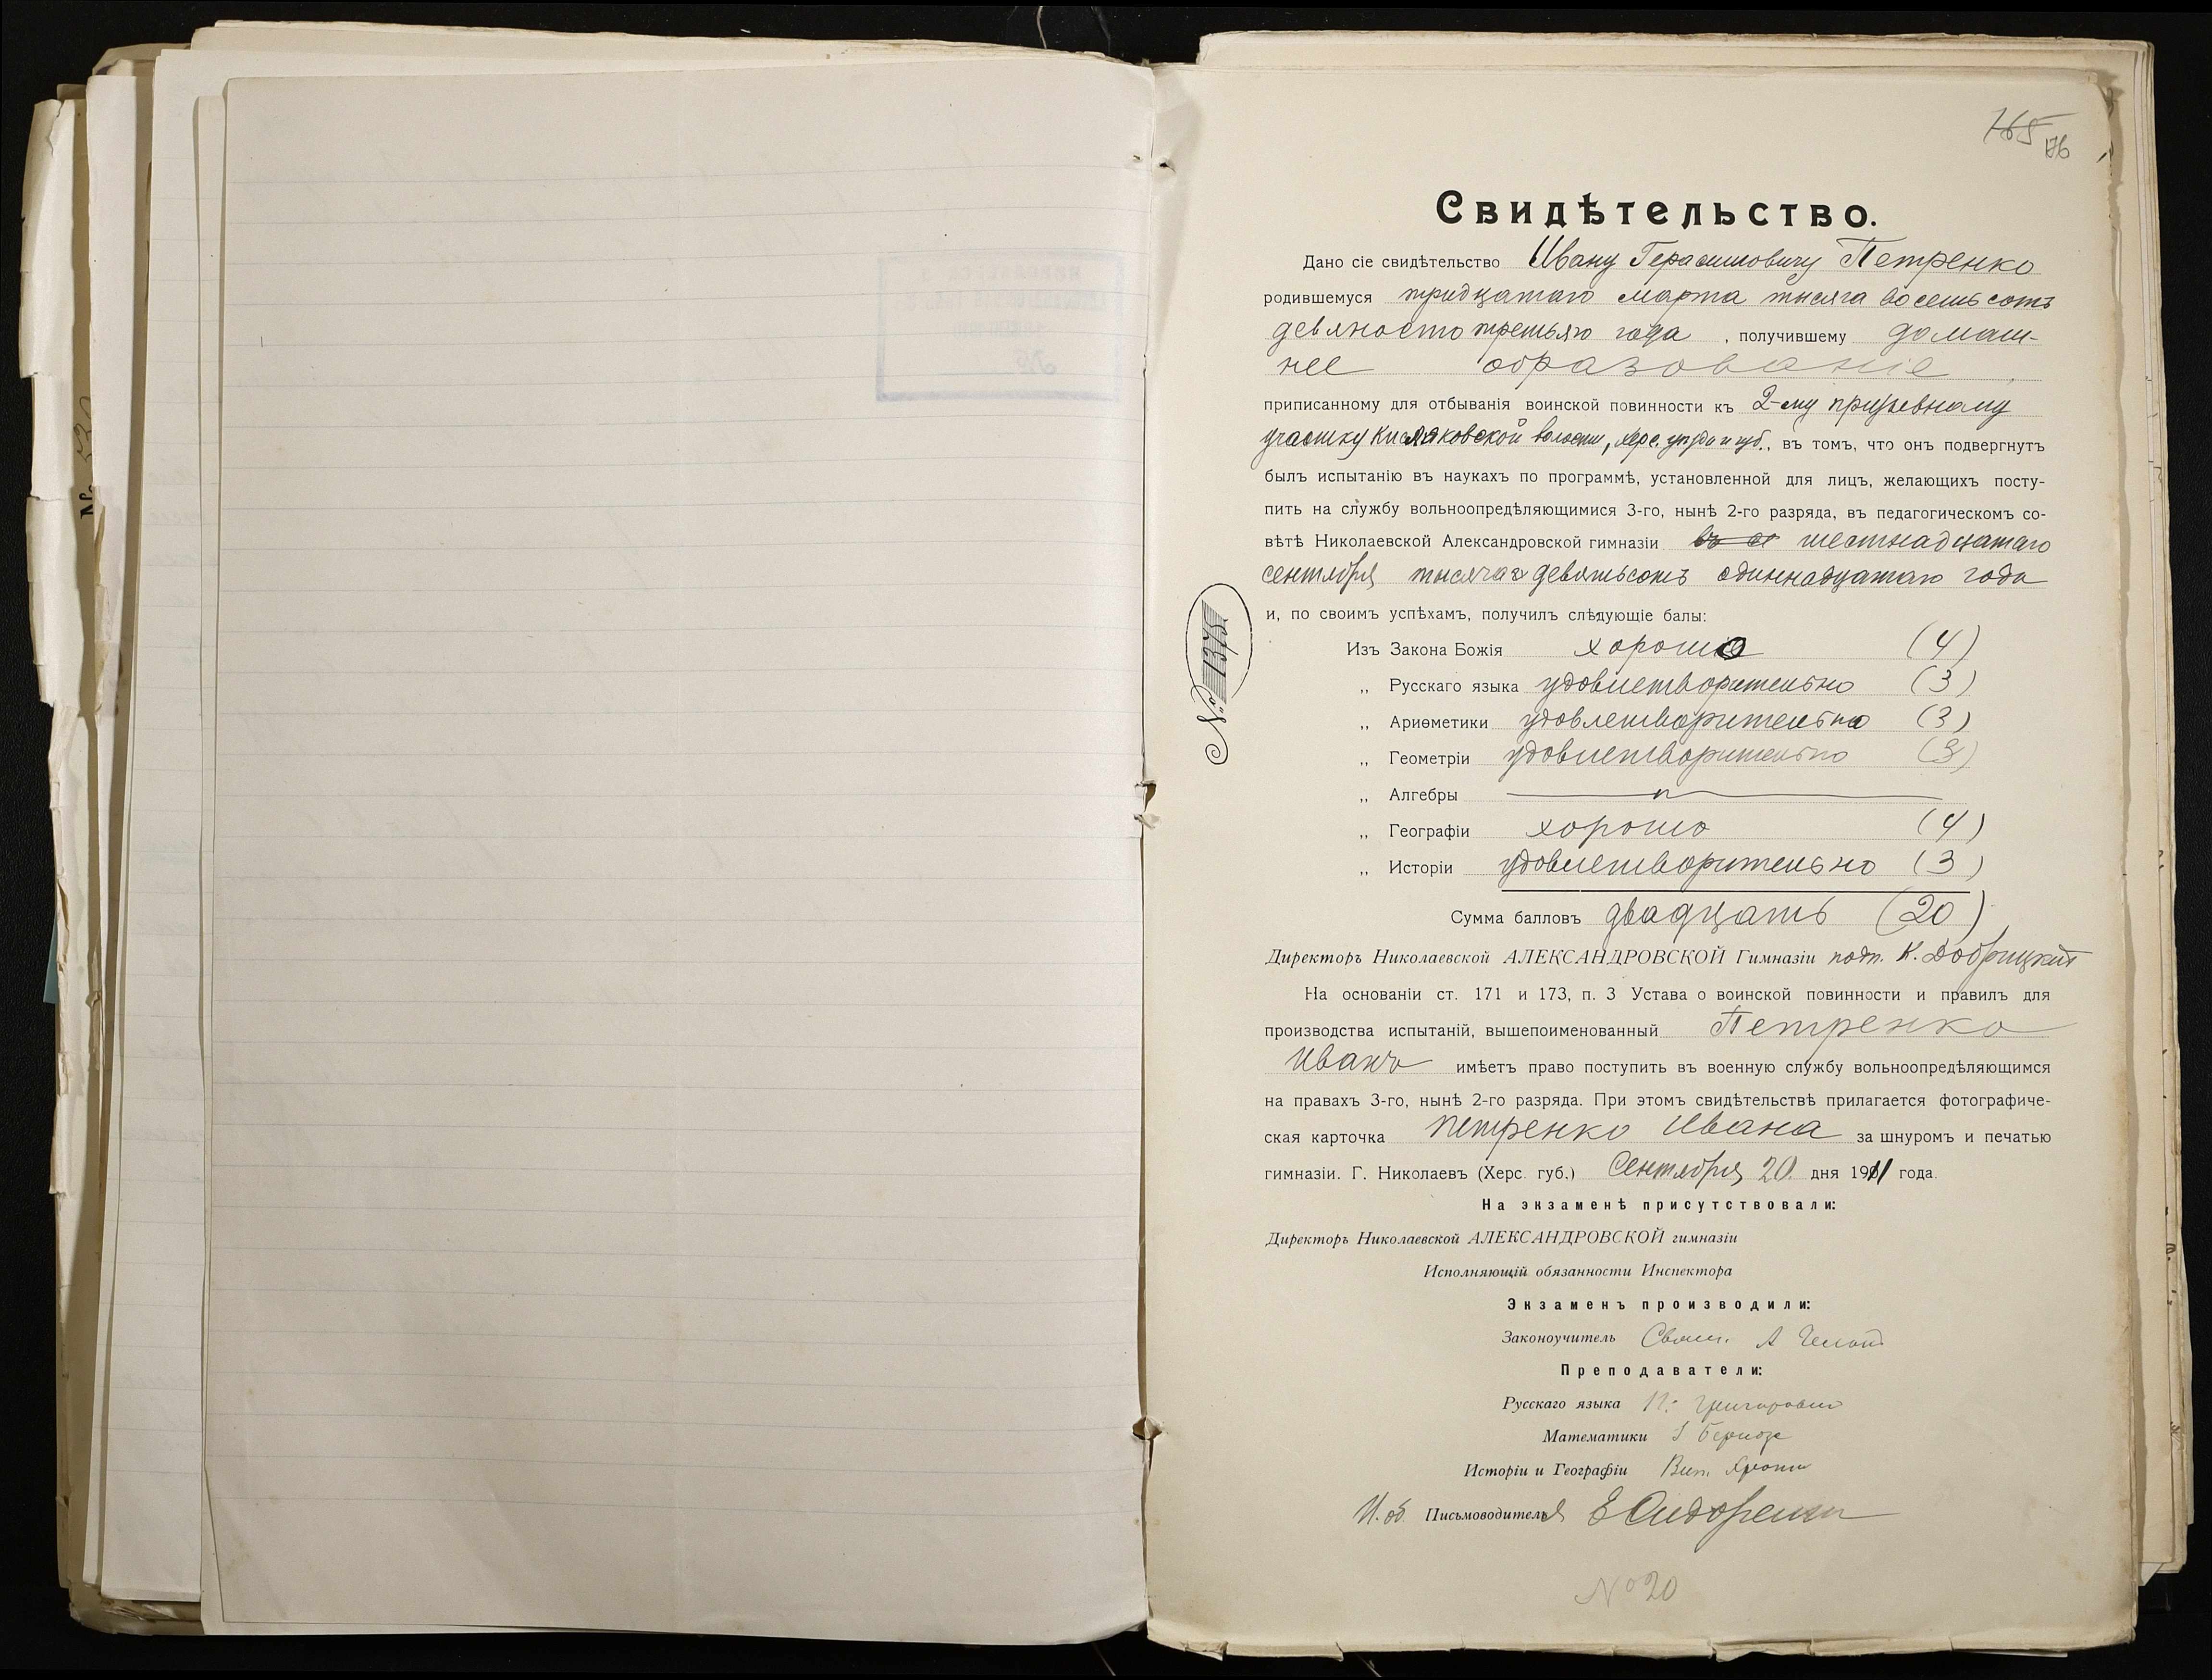 165
176
Свидѣтельство.
Дано сіе свидѣтельство Ивану Герасимовичу Петренко
родившемуся тридцатаго марта тысяча восемьсотъ
девяносто третьяго года, получившему домаш-
нее образованіе,
приписанному для отбыванія воинской повинности къ 2-му призывному
участку Кисляковской волости, Херс. уѣзда и губ., въ томъ, что онъ подвергнутъ
былъ испытанію въ наукахъ по программѣ, установленной для лицъ, желающихъ посту-
пить на службу вольноопредѣляющимися 3-го, нынѣ 2-го разряда, въ педагогическомъ со-
вѣтѣ Николаевской Александровской гимназіи шестнадцатаго
сентября тысяча девятьсотъ одиннадцатаго года
и, по своимъ успѣхамъ, получилъ слѣдующіе балы:
№ 1375
Изъ Закона Божія хорошо (4)
„ Русскаго языка удовлетворительно (3)
„ Ариѳметики удовлетворительно (3)
„ Геометріи удовлетворительно (3)
„ Алгебры
„ Географіи хорошо (4)
„ Исторіи удовлетворительно (3)
Сумма балловъ двадцать (20)
Директоръ Николаевской АЛЕКСАНДРОВСКОЙ Гимназіи подп. К. Добрицкій
На основаніи ст. 171 и 173, п. 3 Устава о воинской повинности и правилъ для
производства испытаній, вышепоименованный Петренко
Иванъ имѣетъ право поступить въ военную службу вольноопредѣляющимся
на правахъ 3-го, нынѣ 2-го разряда. При этомъ свидѣтельствѣ прилагается фотографиче-
ская карточка Петренко Ивана за шнуромъ и печатью
гимназіи. Г. Николаевъ (Херс. губ.) Сентября 20 дня 1911 года.
На экзаменѣ присутствовали:
Директоръ Николаевской АЛЕКСАНДРОВСКОЙ гимназіи
Исполняющій обязанности Инспектора
Экзаменъ производили:
Законоучитель Свящ. А
Преподаватели:
Русскаго языка
Математики
Исторіи и Географіи
И. об. Письмоводителя Е Сидоренко
№ 20